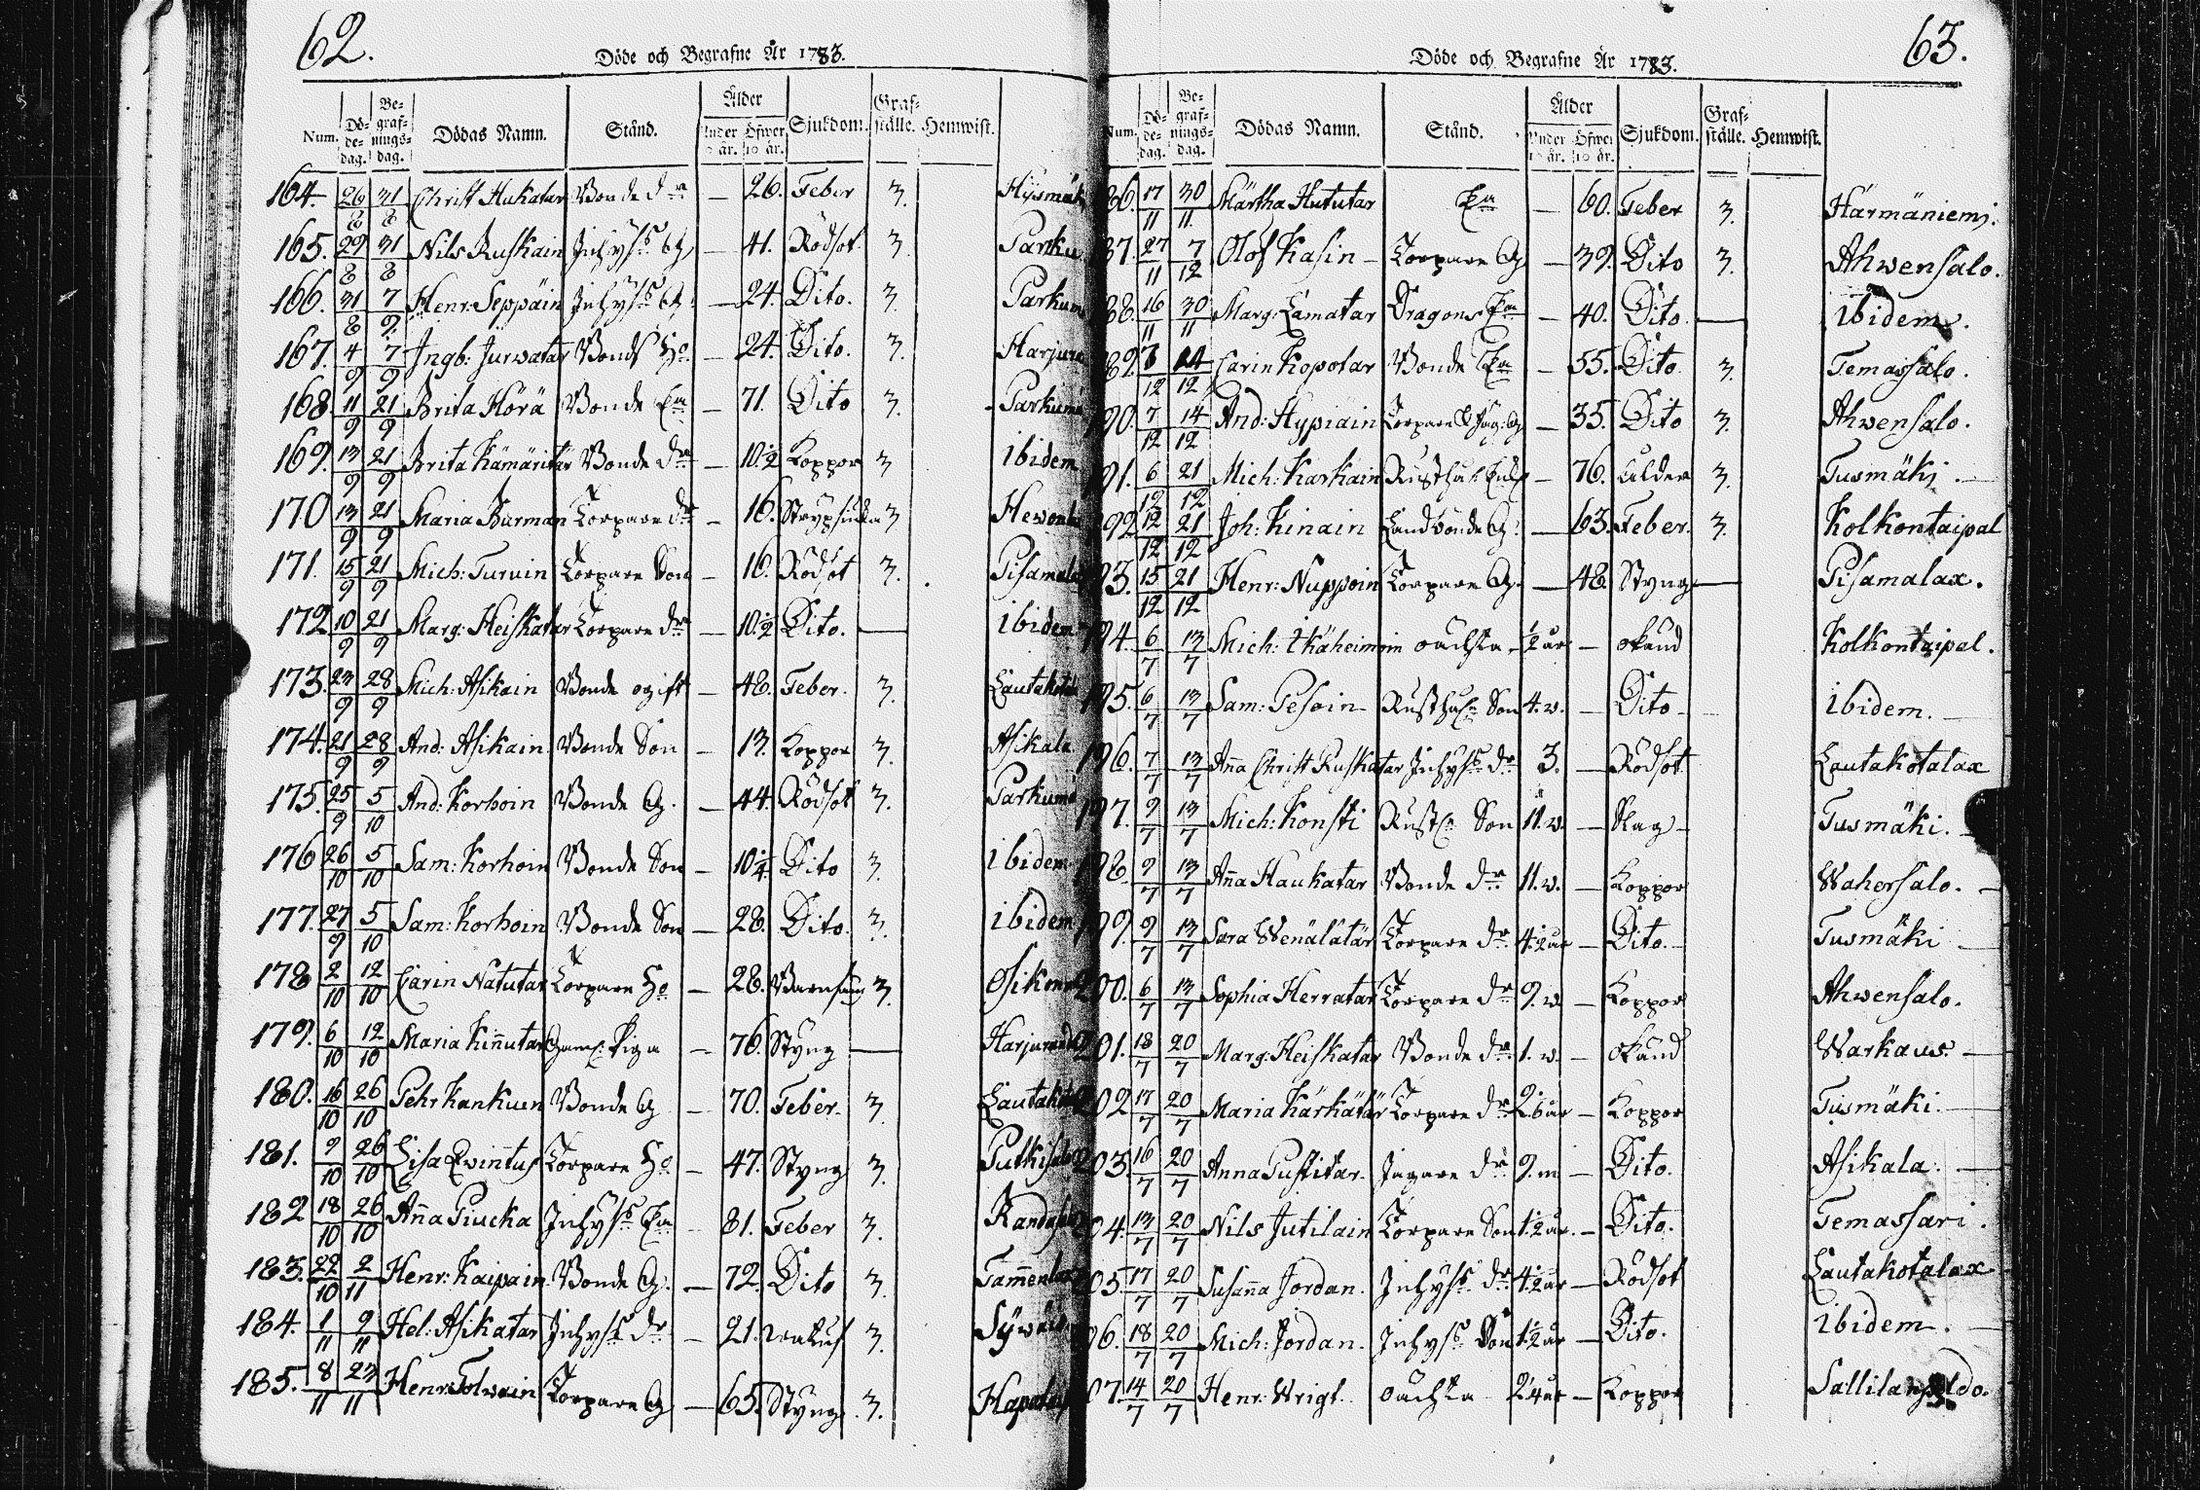 62.
Döde och Begrafne År 1783.
Num. Dö-de-dag. Be-graf-nings-dag. Dödas Namn. Stånd. Ålder Under 10 år. Öfwer 10 år. Sjukdom. Graf-ställe. Hemwist.
164. 26/8 31/8 Christ Hukatar Bonde dr — 26. Feber 3.
165. 29/8 31/8 Nils Ruskain Inhyss G — 41. Rödsot 3.
166. 31/8 7/9 Henr: Seppäin Inhyss G — 24. Dito. 3.
167. 4/9 7/9 Ingb: Jurwatar Bonds Ho — 24. Dito. 3.
168. 11/9 21/9 Brita Hörä Bonde Ea — 71. Dito 3.
169. 13/9 21/9 Brita Kämäritär Bonde dr — 10 1/2 Koppor 3 ibidem
170 13/9 21/9 Maria Burman Torpare dr — 16. Strypsiuka 3
171. 15/9 21/9 Mich: Turuin Torpare Son — 16. Rödsot 3.
172 10/9 21/9 Marg: Heiskatar Torpare dr — 10 1/2 Dito. — ibidem
173. 23/9 28/9 Mich: Asikain Bonde ogift — 48. Feber. 3.
174. 21/9 28/9 And: Asikain Bonde Son — 13. Koppor 3. Asikala
175. 25/9 5/10 And: Korhoin Bonde G. — 44. Rödsot 3.
176 26/10 5/10 Sam: Korhoin Bonde Son — 10 1/4 Dito 3. ibidem
177. 27/9 5/10 Sam: Korhoin Bonde Son — 28. Dito. 3. ibidem
178 2/10 12/10 Carin Natutar Torpare Ho — 28. 3.
179. 6/10 12/10 Maria Kinnutar Gaml: Piga — 76. Styng —
180. 16/10 26/10 Pehr Kankuen Bonde G — 70. Feber. 3.
181. 9/10 26/10 Lisa Torpare Ho — 47. Styng 3.
182 18/10 26/10 Anna Piucka Inhyss Ea — 81. Feber 3.
183. 22/10 2/11 Henr: Kaipain Bonde G. — 72. Dito 3.
184. 1/11 9/11 Hel: Asikatar Inhyss dr — 21. 3.
185. 8/11 23/11 Henr: Tolwain Torpare G — 65. Styng 3.
63.
Döde och Begrafne År 1783.
Num. Dö-de-dag. Be-graf-nings-dag. Dödas Namn. Stånd. Ålder Under 10 år. Öfwer 10 år. Sjukdom. Graf-ställe. Hemwist.
86. 17/11 30/11 Märtha Hututar Ea — 60. Feber 3. Härmäniemi.
87. 27/11 7/12 Olof Kasin Torpare G — 39. Dito 3. Ahwensalo.
88. 16/11 30/11 Marg: Lamatar Dragons Ea — 40. Dito. — ibidem.
89. 14/12 Carin Kopotar Bonde Ea — 55. Dito. 3. Temassalo.
90. 7/12 14/12 And: Hypiäin Torpare — 35. Dito 3. Ahwensalo.
91. 6/12 21/12 Mich: Karkain — 76. ålder 3. Tusmäki.
92 12/12 21/12 Joh: Kinain Landbonde G — 63. Feber. 3. Kolkontaipal
93. 15/12 21/12 Henr: Nuppoin Torpare G. — 48. Styng — Pisamalax.
94. 6/7 13/7 Mich: oächta 1/2 år — okänd Kolkontaipal.
95. 6/7 13/7 Sam: Pesoin Rusth: Son 4. v. — Dito ibidem.
196. 7/7 13/7 Anna Christ Ruskatar Inhyss dr 3. — Rödsot Lautakotalax
197. 9/7 13/7 Mich: Konsti Rust: Son 11. v. — Slag Tusmäki.
198. 9/7 13/7 Anna Haukatar Bonde dr 11. v. — Koppor Wahersalo.
199. 9/7 13/7 Sara Wenälätär Torpare dr 4 1/2 år — Dito. Tusmäki
200. 6/7 13/7 Sophia Herratar Torpare dr 9. v. — Koppor Ahwensalo.
201. 18/7 20/7 Marg: Heiskatar Bonde dr 1. v. — okänd Warkaus.
202 17/7 20/7 Maria Kärkätär Torpare dr — Koppor Tusmäki.
203. 16/7 20/7 Anna Pustitar Jagare dr 9. m — Dito. Asikala.
04. 13/7 20/7 Nils Jutilain Torpare Son 1 1/2 år — Dito. Temassari.
05. 17/7 20/7 Susanna Jordan. Inhyss dr 4 1/2 år — Rödsot Lautakotalax
06. 18/7 20/7 Mich: Jordan. Inhyss Son 1 1/2 år — Dito. ibidem.
07. 14/7 20/7 Henr: Wrigt oächta 2 1/4 år — Koppor